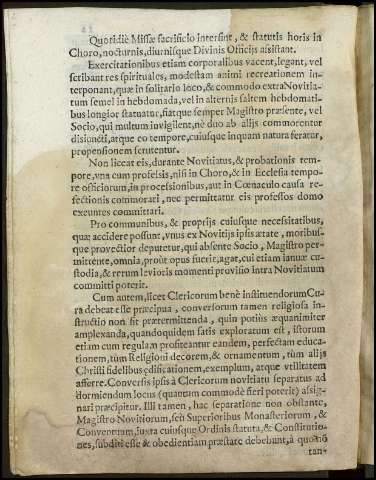 Quotidiè Missæ sacrificio intersint, & statutis horis in
Choro, nocturnis, diurnisque Divinis Officijs assistant.
Exercitationibus etiam corporalibus vacent, legant, vel
scribant res spirituales, modestam animi recreationem in-
terponant, quæ in solitario loco, & commodo extra Novitia-
tum semel in hebdomada, vel in alternis saltem hebdomati-
bus longior statuatur, fiatque semper Magistro præsente, vel
Socio, qui multum invigilent, nè duo ab alijs commorentur
disiuncti, atque eo tempore, cuiusque inquam natura feratur,
propensionem scrutentur.
Non liceat eis, durante Novitiatus, & probationis tem-
pore, vna cum professis, nisi in Choro, & in Ecclesia tempo-
re officiorum, in processionibus, aut in Cœnaculo causa re-
fectionis commorari, nec permittatur eis professos domo
exeuntes committari.
Pro communibus, & proprijs cuiusque necessitatibus,
quæ accidere possunt, vnus ex Novitijs ipsis ætate, moribus-
que provectior deputetur, qui absente Socio, Magistro per-
mittente, omnia, proùt opus fuerit, agat, cui etiam ianuæ cu-
stodia, & rerum levioris momenti provisio intra Novitiatum
committi poterit.
Cum autem, licet Clericorum benè instituendorum Cu-
ra debeat esse præcipua, conversorum tamen religiosa in-
structio non sit prætermittenda, quin potiùs æquanimiter
amplexanda, quandoquidem satis exploratum est, istorum
etiam cum regulam profiteantur eandem, perfectam educa-
tionem, tùm Religioni decorem, & ornamentum, tùm alijs
Christi fidelibus ędificationem, exemplum, atque vtilitatem
afferre. Conversis ipsis à Clericorum novitiatu separatus ad
dormiendum locus (quatum commodè fieri poterit) assig-
nari præcipitur. Illi tamen, hac separatione non obstante,
Magistro Novitiorum, seù Superioribus Monasteriorum, &
Conventuum, iuxta cuiusque Ordinis statuta, & Constitutio-
nes, subditi esse & obedientiam præstare debebunt, à quo
tan-